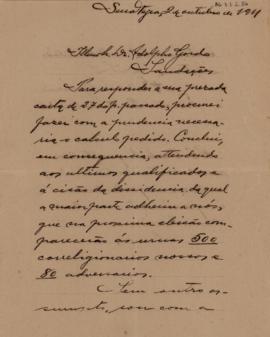 2 de outubro de 1911
Illmo Sr. Dr. Adolpho Gordo
Saudações
Para responder a sua prezada
carta de 27 do p. passado, procurei
fazer com a prudencia necessa-
ria o calculo pedido. Conclui,
em consequencia, attendendo
aos ultimos qualificados e
á cisão da dissidencia da qual
a maior parte adheriu a nós,
que na proxima eleição com-
parecerão ás urnas 500
correligionarios nossos e
80 adversarios.
Sem outro as-
sumpto, sou com a